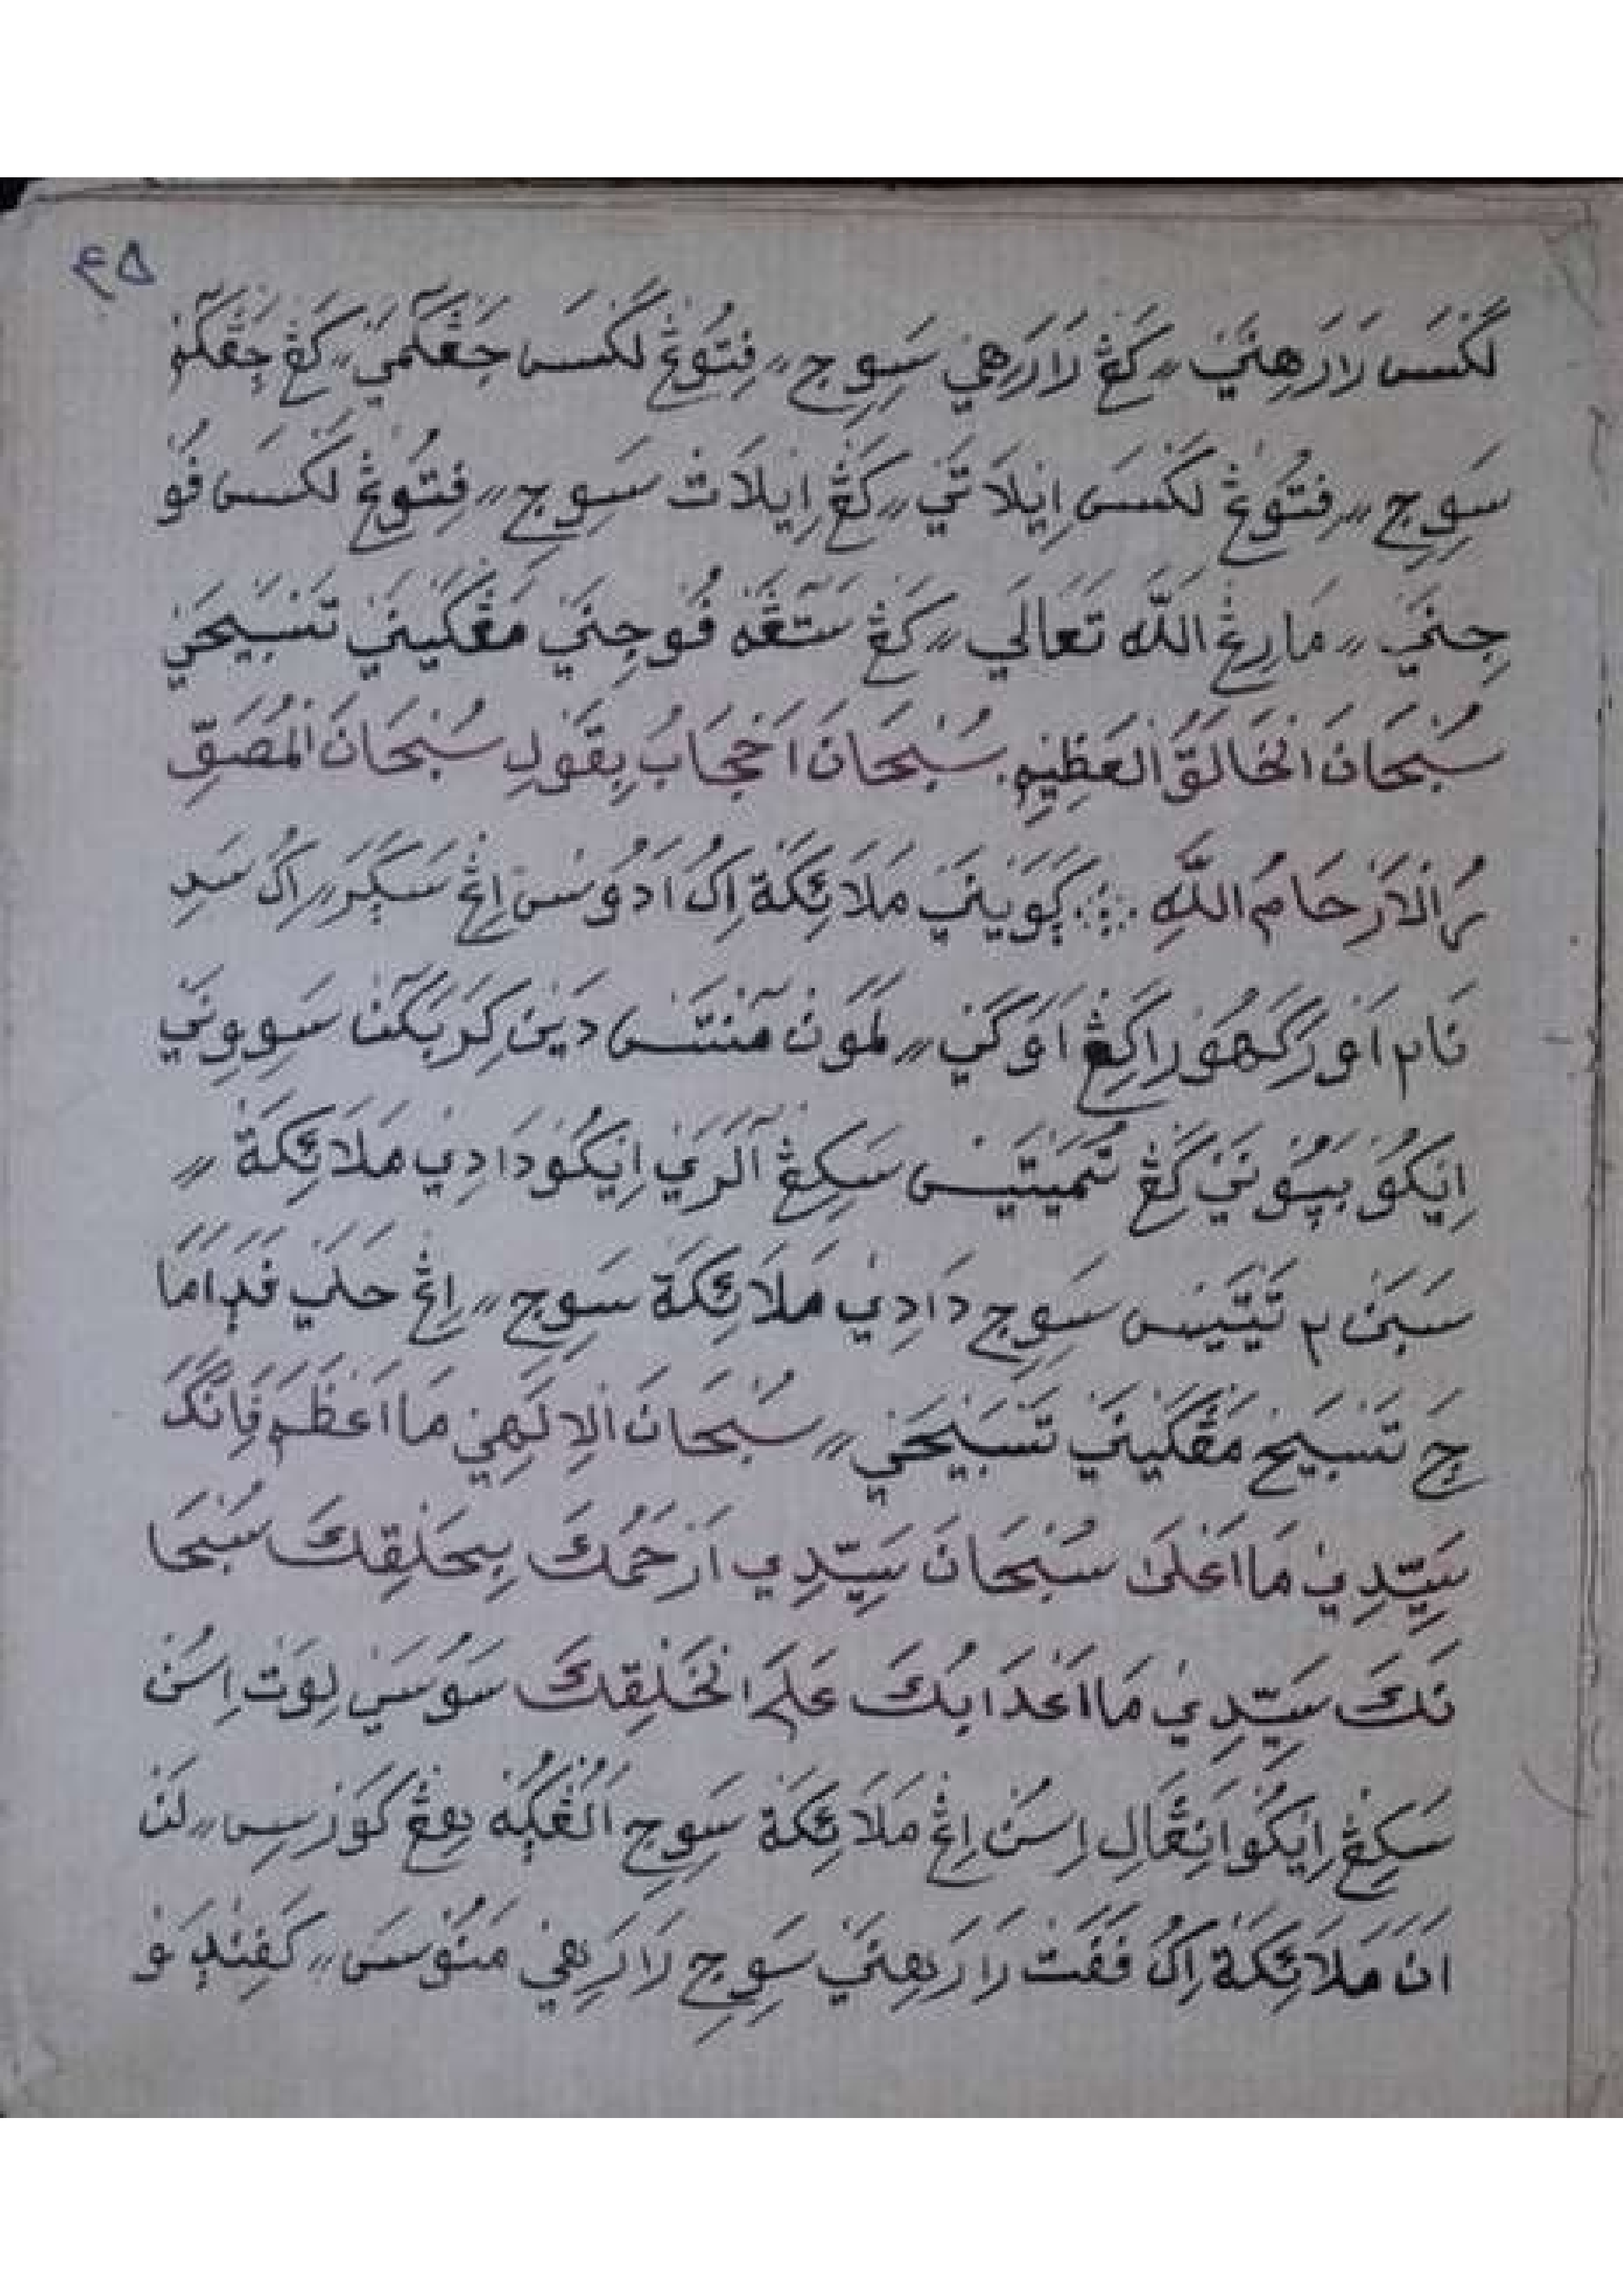 ٤٥
لَكْسَ رَارَهِنَيْ ⹁ كَڠْ رَارَهِيْ سَوِجِ ⹁ فِتُوڠْ لَكْسَ جَڠْكٓمَيْ ⹁ كَڠْ جَڠْكٓمْ
سَوِجِ ⹁ فِتُوڠْ لَكْسَ اِيْلَاتَيْ ⹁ كَڠْ اِيْلَاتْ سَوِجِ ⹁ فِتُوڠْ لَكْسَ فُوْ
جِنَيْ ⹁ مَارِڠْ اللّٰه تَعَالَي ⹁ كَڠْ سَتٓڠَهْ فُوْجِنَيْ مَڠْكَيْنَيْ تَسْبَيْحَيْ
سُبْحَانَ الْخَالَقُ الْعَظِيْمِ. سُبْحَانَ اَحْجَابُ بِقَوْلِ سُبْحَانَ الْمُصَقِّ
رُ الْاَرْحَامُ اللّٰهِ ݢَوَيْنَيْ مَلَائِكَةْ اِكُ اَدُوْسْ اِڠْ سَݢَرَ ⹁ اِكُ سَدِ
نَامَ اَوْرَ ݢَهُوْرَ اِكِڠْ اَوَكَيْ ⹁ لَمَوْنْ مٓنْتَسْ دَيْنْ كِرَبَكٓنْ سَوِوِنَيْ
اِيْكُوْ بَپُوْنَيْ كَڠْ تُمَيْتَيْسْ سَكِڠْ آلَرَيْ اِيْكُوْ دَادِيْ مَلَائِكَةْ ⹁
سَبَنْ ٢ تَيْتَيْسْ سَوِجِ دَادِيْ مَلَائِكَةْ سَوِجِ ⹁ اِڠْ حَلَيْ فَدَامَا
چَ تَسْبَيْحْ مَڠْكَيْنَيْ تَسْبَيْحَيْ ⹁ سُبْحَانَ الْاِلَهِيْ مَا اَعْظَمَ فَاِنَّكَ
سَيِّدِيْ مَا اَعْلَى سُبْحَانَ سَيِّدِي اَرْحَمُكَ بِحَلْقِكَ سُبْحَا
نَكَ سَيِّدِيْ مَا اَعْدَابُكَ عَلَى الْخَلْقِكَ سَوُسَيْ لِوَتْ اِسُنْ
سَكِڠْ اِيْكُوْ اَنِڠَالِ اِسُنْ اِڠْ مَلَائِكَةْ سَوِجِ اَلُڠْݢُهْ اِڠْ كَوْرْسِيْ ⹁ لَنْ
اَنَ مَلَائِكَةْ اِكُ فَفَتْ رَارَهِنَيْ سَوِجِ رَارَهِيْ مَنُوْسَ ⹁ كَفِنْدَوْ